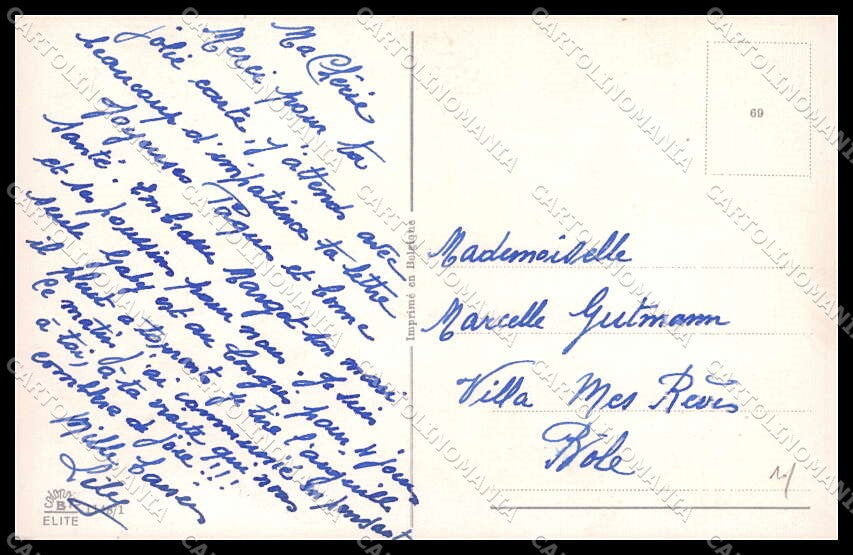 Ma Chérie
Merci pour ta
jolie carte, j'attends avec
beaucoup d'impatience ta lettre
Joyeuses Pâques et bonne
santé. Embrasse Margot son mari
et ses poussins pour nous. Je suis
seule Gaby est au Congo pour 4 jours
il pleut a torrents je tire l'anguille
Ce matin j'ai communié en pensant
à toi, à ta visite qui nous
comblera de joie !!!
Mille baisers
Lily
ELITE
1148/1
Imprimé en Belgique
69
Mademoiselle
Marcelle Gutmann
Villa Mes Rêves
Bôle
CARTOLINOMANIA